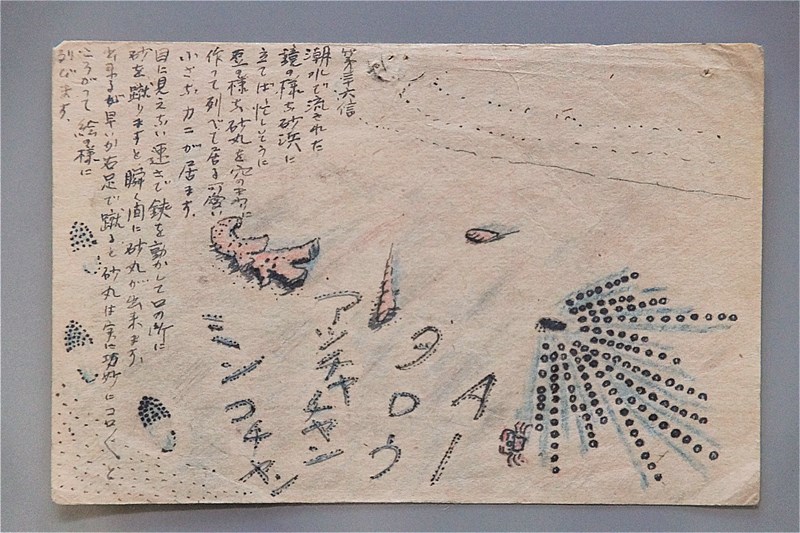 第三六信
潮水で流された
鏡の様な砂浜に
立てば忙しそうに
豆の様な砂丸を穴の
作って列べて居る可愛い
小さなカニが居ます。
目に見えない速さで鋏を動かして口の所に
砂を蹴りますと瞬く間に砂丸が出来ます。
出来るが早いか右足で蹴ると砂丸は実に巧妙にコロ〱と
ころがって絵の様に
列びます。
Aー
タロウ
アツチャチャン
シンコチャン